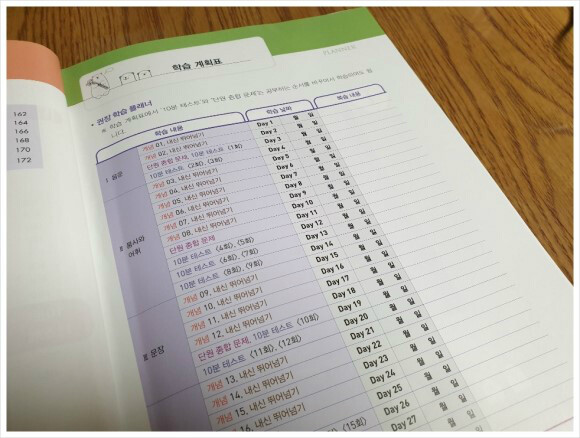 162
164
166
168
170
172
PLANNER
학습 계획표
• 권장 학습 플래너
※ 학습 계획표에서 '10분 테스트'와 '단원 종합 문제'는 공부하는 순서를 바꾸어서 학습하여도 됩
니다.
학습 내용 학습 날짜 복습 내용
Ⅰ 음운
개념 01. 내신 뛰어넘기 Day 1 월 일
개념 02. 내신 뛰어넘기 Day 2 월 일
단원 종합 문제, 10분 테스트 〈1회〉 Day 3 월 일
10분 테스트 〈2회〉, 〈3회〉 Day 4 월 일
Ⅱ 품사와 어휘
개념 03. 내신 뛰어넘기 Day 5 월 일
개념 04. 내신 뛰어넘기 Day 6 월 일
개념 05. 내신 뛰어넘기 Day 7 월 일
개념 06. 내신 뛰어넘기 Day 8 월 일
개념 07. 내신 뛰어넘기 Day 9 월 일
개념 08. 내신 뛰어넘기 Day 10 월 일
단원 종합 문제 Day 11 월 일
10분 테스트 〈4회〉, 〈5회〉 Day 12 월 일
10분 테스트 〈6회〉, 〈7회〉 Day 13 월 일
10분 테스트 〈8회〉, 〈9회〉 Day 14 월 일
Ⅲ 문장
개념 09. 내신 뛰어넘기 Day 15 월 일
개념 10. 내신 뛰어넘기 Day 16 월 일
개념 11. 내신 뛰어넘기 Day 17 월 일
개념 12. 내신 뛰어넘기 Day 18 월 일
단원 종합 문제, 10분 테스트 〈10회〉 Day 19 월 일
10분 테스트 〈11회〉, 〈12회〉 Day 20 월 일
개념 13. 내신 뛰어넘기 Day 21 월 일
개념 14. 내신 뛰어넘기 Day 22 월 일
개념 15. 내신 뛰어넘기 Day 23 월 일
개념 16. 내신 뛰어넘기 Day 24 월 일
Day 25 월 일
〈15회〉 Day 26 월 일
Day 27 월 일